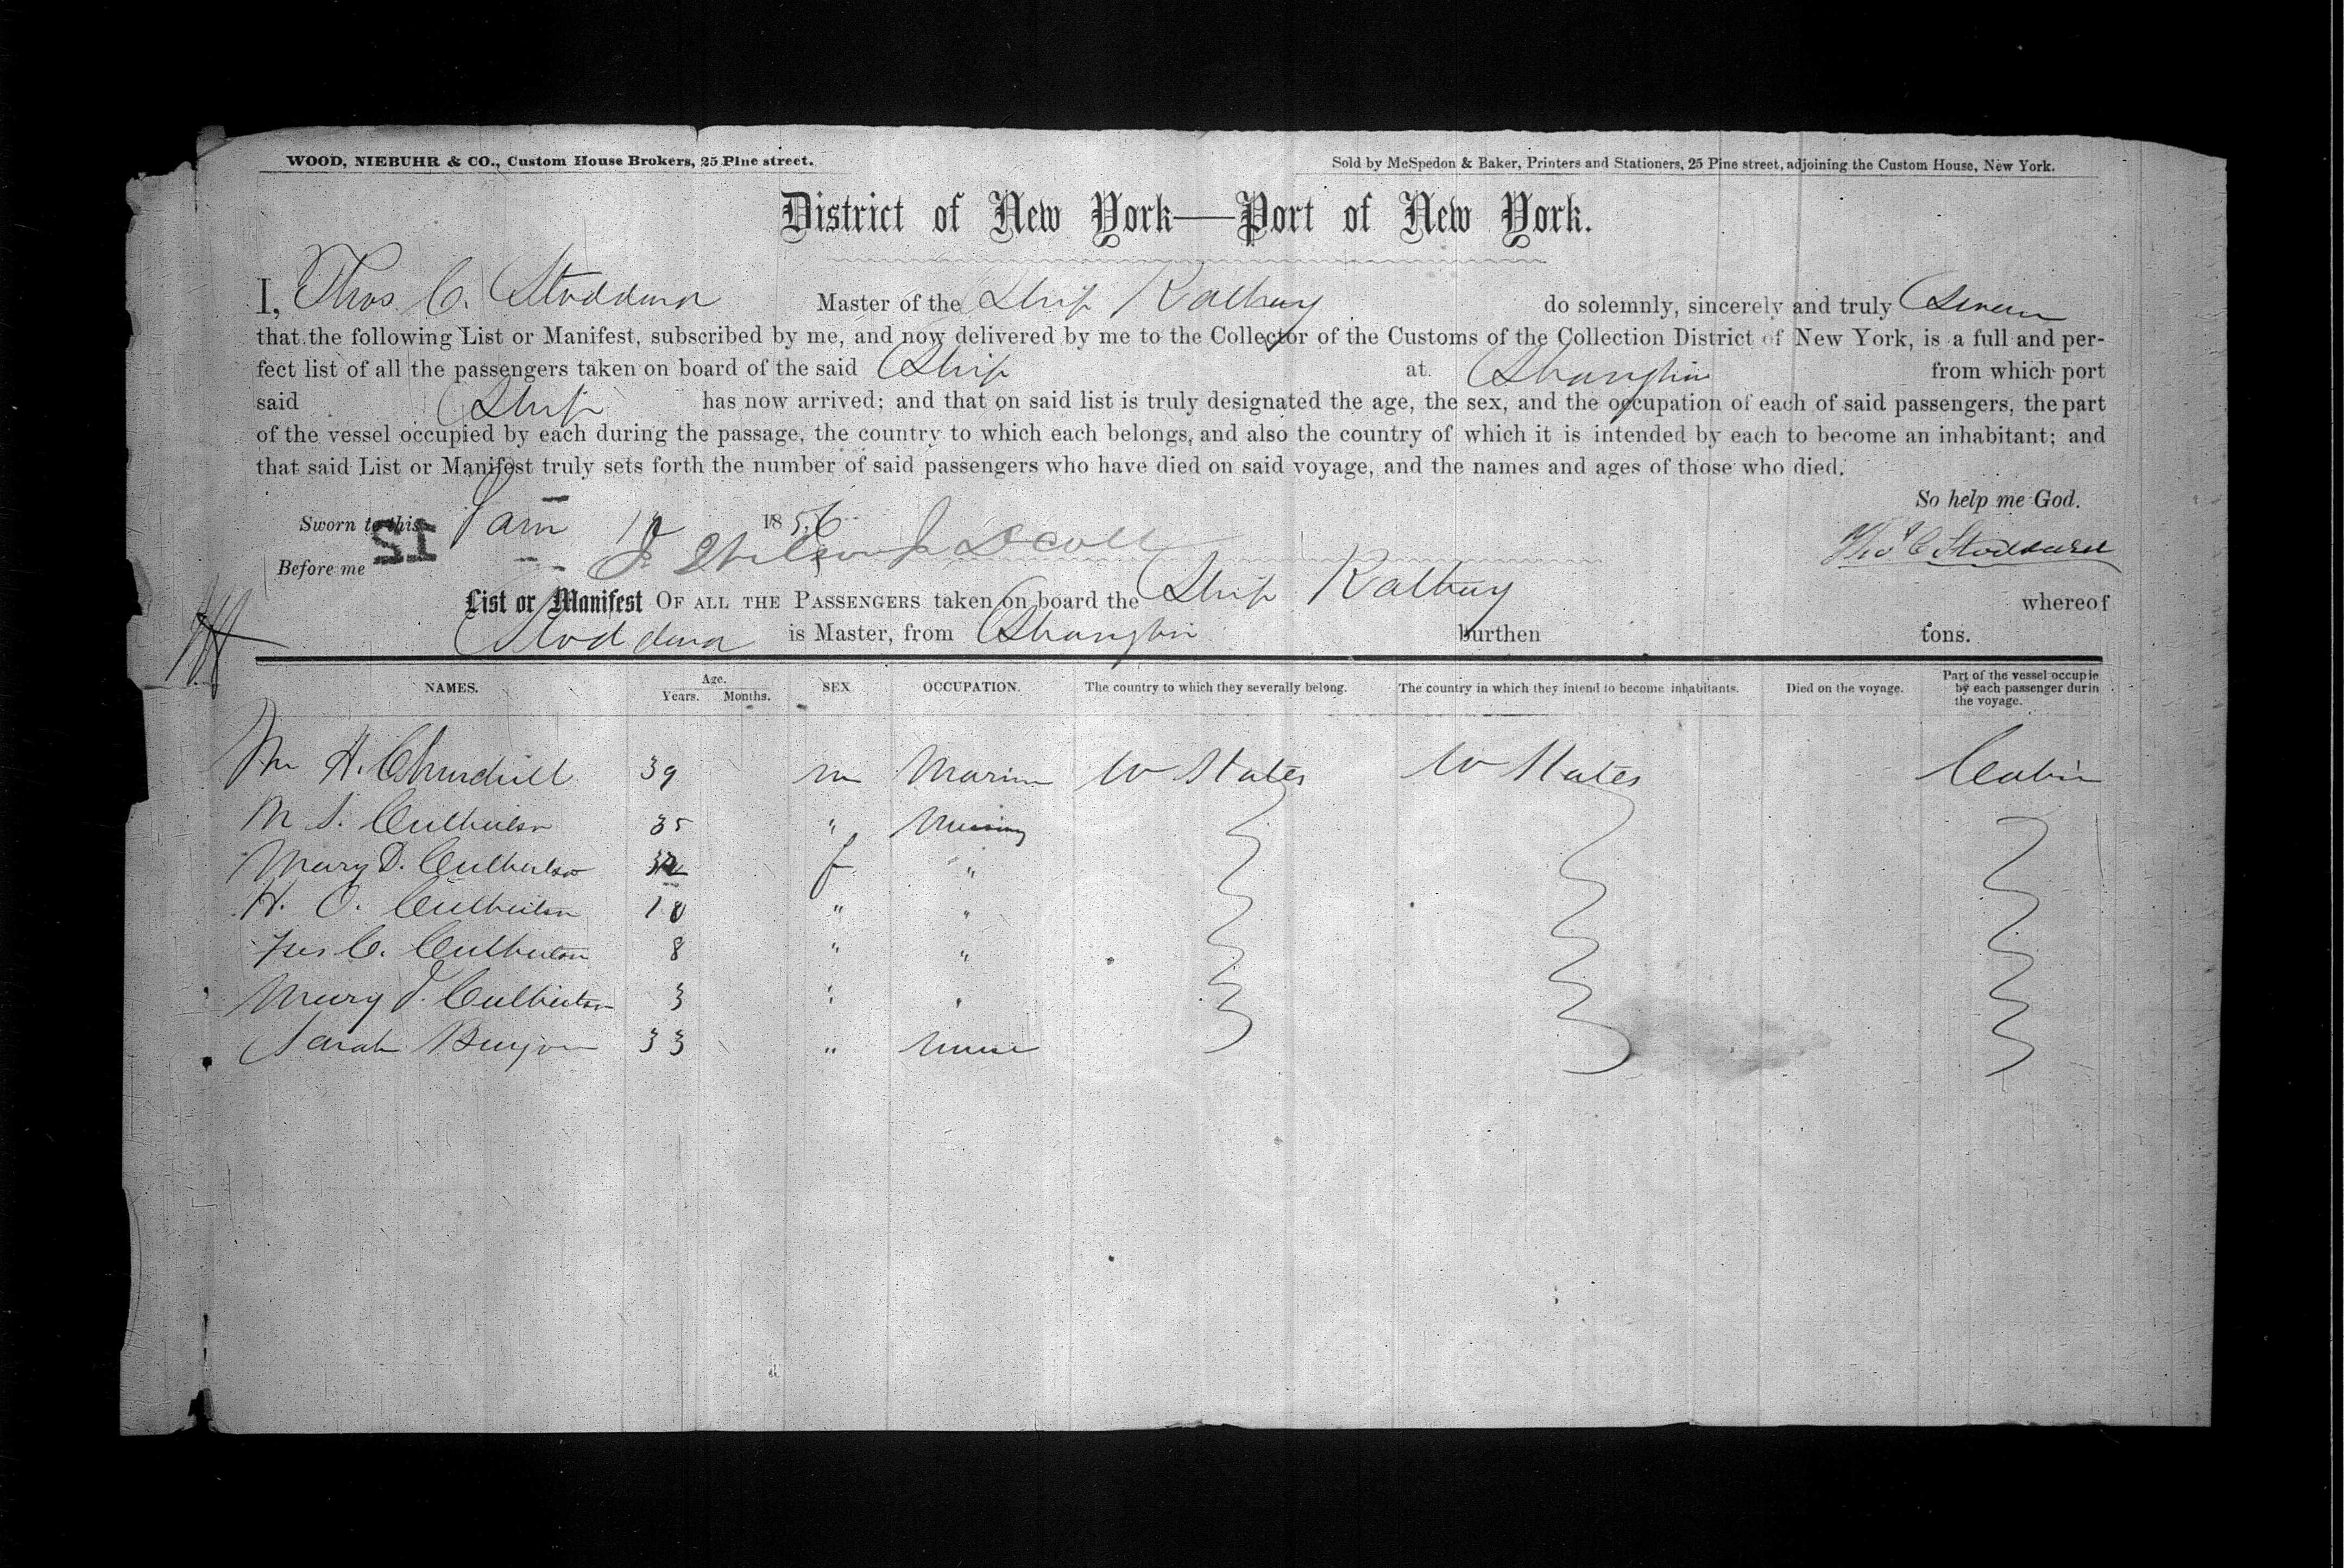 WOOD, NIEBUHR & CO., Custom House Brokers, 25 Pine street.
Sold by McSpedon & Baker, Printers and Stationers, 25 Pine street, adjoining the Custom House, New York.
District of New York—Port of New York.
I, Thos. C. Stoddard Master of the Ship Kathay do solemnly, sincerely and truly Swear
that the following List or Manifest, subscribed by me, and now delivered by me to the Collector of the Customs of the Collection District of New York, is a full and per-
fect list of all the passengers taken on board of the said Ship at Shanghai from which port
said Ship has now arrived; and that on said list is truly designated the age, the sex, and the occupation of each of said passengers, the part
of the vessel occupied by each during the passage, the country to which each belongs, and also the country of which it is intended by each to become an inhabitant; and
that said List or Manifest truly sets forth the number of said passengers who have died on said voyage, and the names and ages of those who died.
So help me God.
Sworn to this Jan 1856
Thos C Stoddard
Before me
List or Manifest OF ALL THE PASSENGERS taken on board the Ship Kathay whereof
Stoddard is Master, from Shanghai burthen tons.
NAMES. Age. Years. Months. SEX. OCCUPATION. The country to which they severally belong. The country in which they intend to become inhabitants. Died on the voyage. Part of the vessel occupie by each passenger durin the voyage.
H. Churchill 39 m Marine U States U States Cabin
M S. Culbertson 35 "
Mary D. Culbertson f "
H. C. Culbertson 10 " "
C. Culbertson 8 " "
Mary J. Culbertson 3 " "
Sarah 33 " Nurse